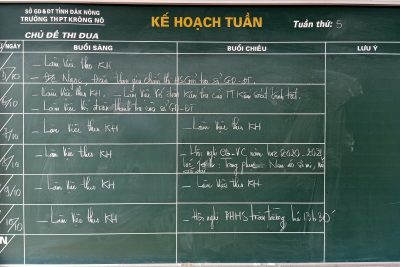 SỞ GD&ĐT TỈNH ĐĂK NÔNG
TRƯỜNG THPT KRÔNG NÔ
KẾ HOẠCH TUẦN
Tuần thứ: 5
CHỦ ĐỀ THI ĐUA
NGÀY
BUỔI SÁNG
BUỔI CHIỀU
LƯU Ý
5/10
- Làm việc theo KH
- Đ/c Ngọc, tham gia chấm thi HSG tại sở GD-ĐT.
6/10
- Làm việc theo KH. - Làm việc với đoàn kiểm tra của
- Làm việc với đoàn thanh tra của sở GD-ĐT
7/10
- Làm việc theo KH
- Làm việc theo KH
- Làm việc theo KH
- Hội nghị CB-VC năm học 2020-2021
9/10
- Làm việc theo KH
- Làm việc theo KH
10/10
- Làm việc theo KH
- Hội nghị PHHS toàn trường lúc 13h30'